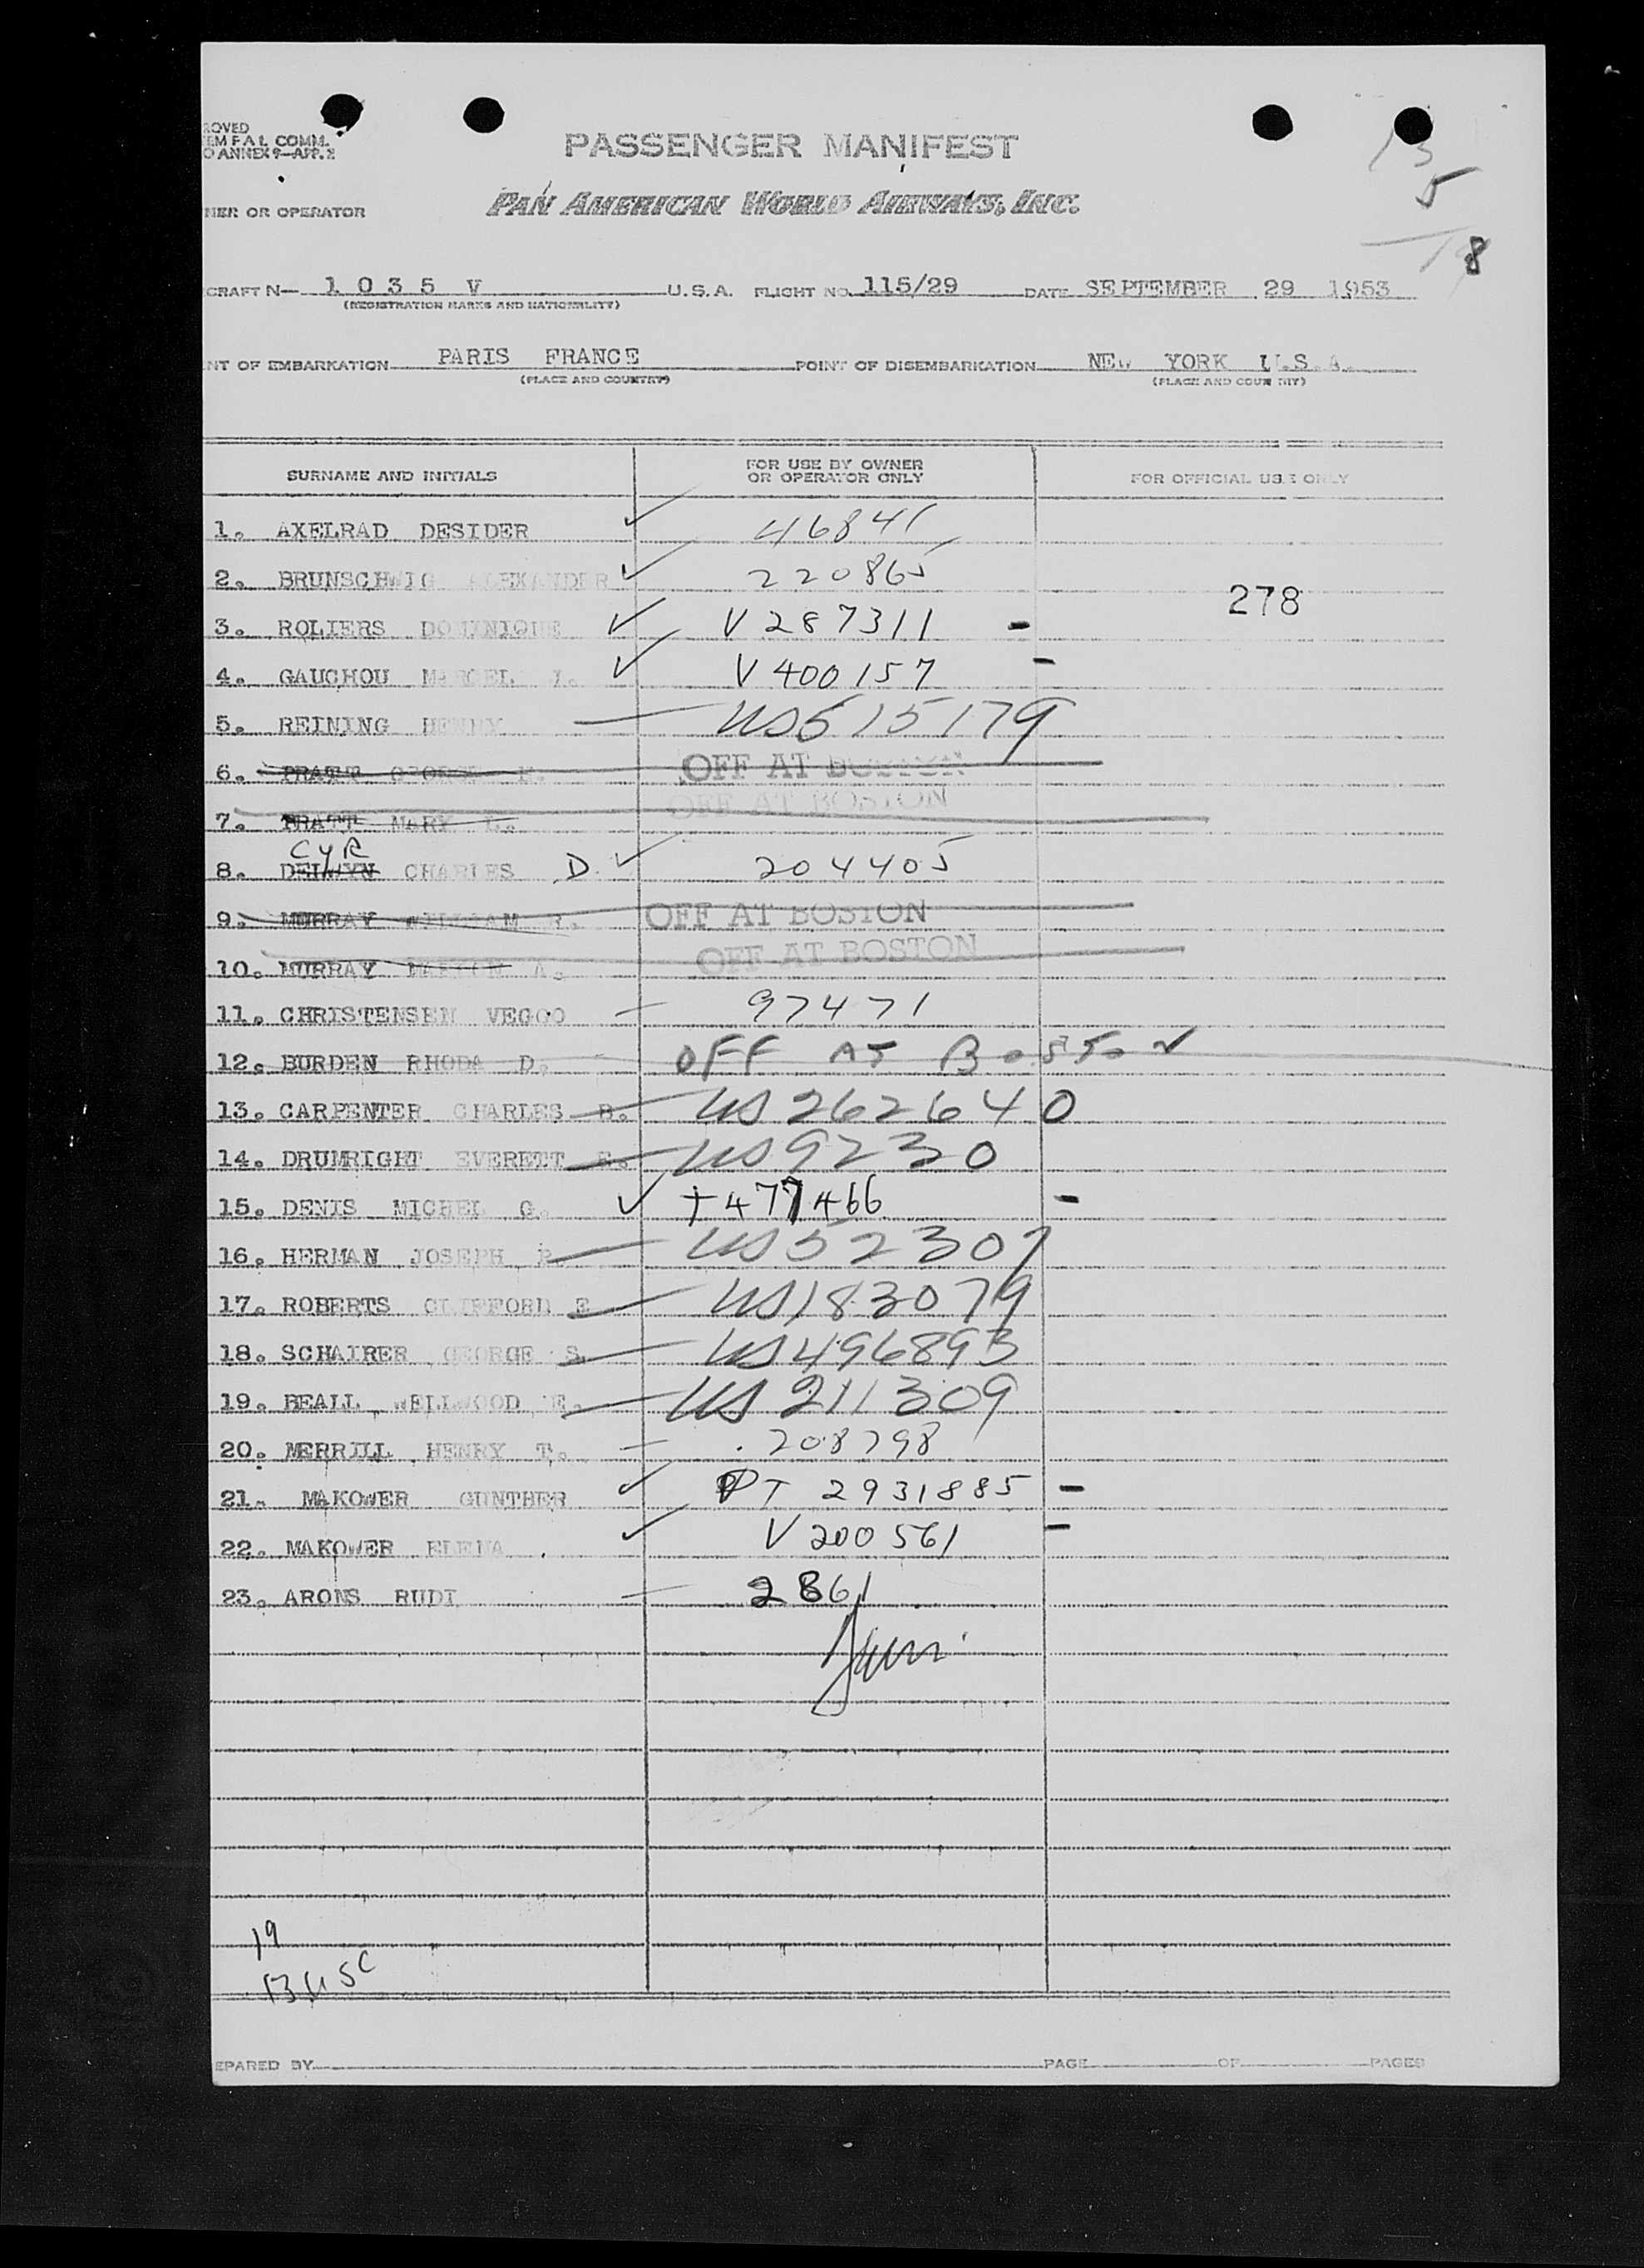 ROVED
EM FAL COMM.
O ANNEX 9—APP. 2
PASSENGER MANIFEST
13
5
18
NER OR OPERATOR
PAN AMERICAN WORLD AIRWAYS, INC.
CRAFT N— 1 0 3 5 V U.S.A. FLIGHT NO. 115/29 DATE SEPTEMBER 29 1953
(REGISTRATION MARKS AND NATIONALITY)
NT OF EMBARKATION PARIS FRANCE POINT OF DISEMBARKATION NEW YORK U.S.A.
(PLACE AND COUNTRY) (PLACE AND COUNTRY)
SURNAME AND INITIALS FOR USE BY OWNER OR OPERATOR ONLY FOR OFFICIAL USE ONLY
1. AXELRAD DESIDER 46841
2. BRUNSCHWIG ALEXANDER 220865
278
3. ROLIERS DOMINIQUE V 287311
4. GAUCHOU MARCEL V 400157
5. REINING HENRY US515179
6. PRATT GEORGE F. OFF AT BOSTON
7. PRATT MARY OFF AT BOSTON
CYR
8. CHARLES D 204405
9. MURRAY WILLIAM R. OFF AT BOSTON
10. MURRAY A. OFF AT BOSTON
11. CHRISTENSEN VEGGO 97471
12. BURDEN RHODA D. OFF AT BOSTON
13. CARPENTER CHARLES B. US 262640
14. DRUMRIGHT EVERETT US9230
15. DENIS MICHEL G. +477466
16. HERMAN JOSEPH US52307
17. ROBERTS CLIFFORD E US183079
18. SCHAIRER GEORGE S. US496893
19. BEALL WELLWOOD E. US 211309
20. MERRILL HENRY T. 208798
21. MAKOWER GUNTHER PT 2931885
22. MAKOWER ELENA V 200561
23. ARONS RUDI 2861
19
13 USC
EPARED BY PAGE OF PAGES